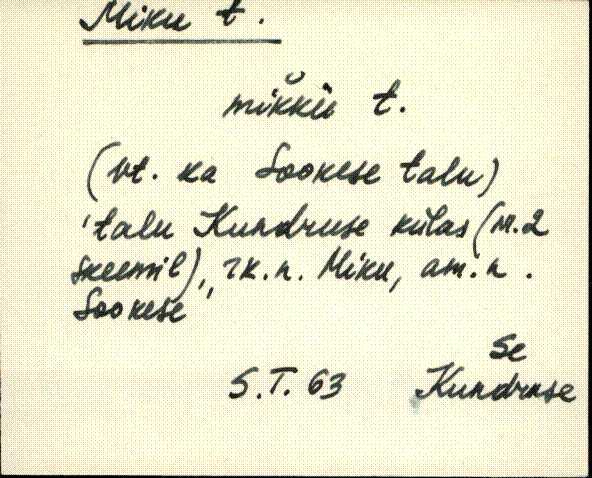 Miku t.
mik̆kù t.
(vt. ka Sookese talu)
'talu Kundruse külas (m.2
skeemil), rk.n. Miku, am.n.
Sookese'
Se
S.T. 63 Kundruse